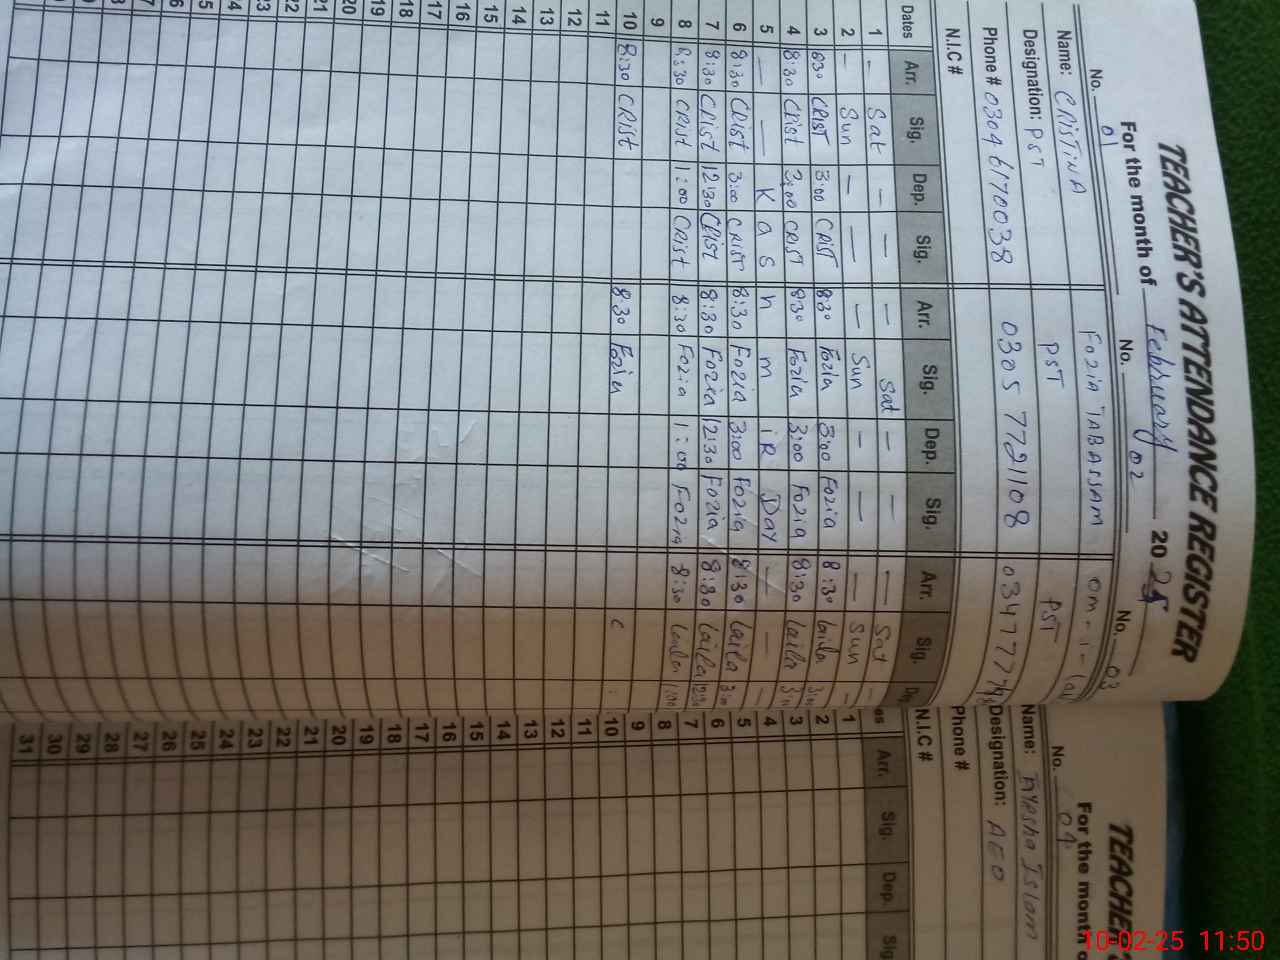 TEACHER'S ATTENDANCE REGISTER
For the month of February 2025
No. 01 No. 02 No. 03
Name: CRISTINA FOZIA TABASSAM
Designation: PST PST PST
Phone # 0304 6170038 0305 7721108
N.I.C #
Dates Arr. Sig. Dep. Sig. Arr. Sig. Dep. Sig. Arr. Sig.
1 - Sat - - - Sat - - - Sat -
2 - Sun - - - Sun - - - Sun -
3 830 CRIST 3:00 CRIST 830 Fozia 3:00 Fozia 8:30 Laila
4 8:30 CRist 3:00 CRIST 830 Fozia 3:00 Fozia 8:30 Laila
5 - - K a s h m iR DAY - - -
6 8:30 CRist 3:00 CRIST 8:30 Fozia 3:00 Fozia 8:30 Laila
7 8:30 CRist 12:30 CRist 8:30 Fozia 12:30 Fozia 8:30 Laila 12:30
8 8:30 CRist 1:00 CRist 8:30 Fozia 1:00 Fozia 8:30 1:00
9
10 8:30 CRist 8:30 Fozia
11
12
13
14
15
16
17
18
19
20
21
22
23
TEACHER'S
For the month
No. 04
Name: Ayesha Islam
Designation: AEO
Phone #
N.I.C #
Arr. Sig. Dep. Sig
1
2
3
4
5
6
7
8
9
10
11
12
13
14
15
16
17
18
19
20
21
22
23
24
25
26
27
28
29
30
31
10-02-25 11:50